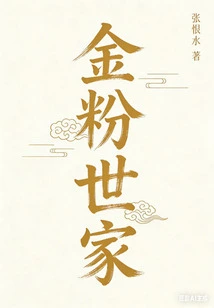 张恨水 著
金粉世家